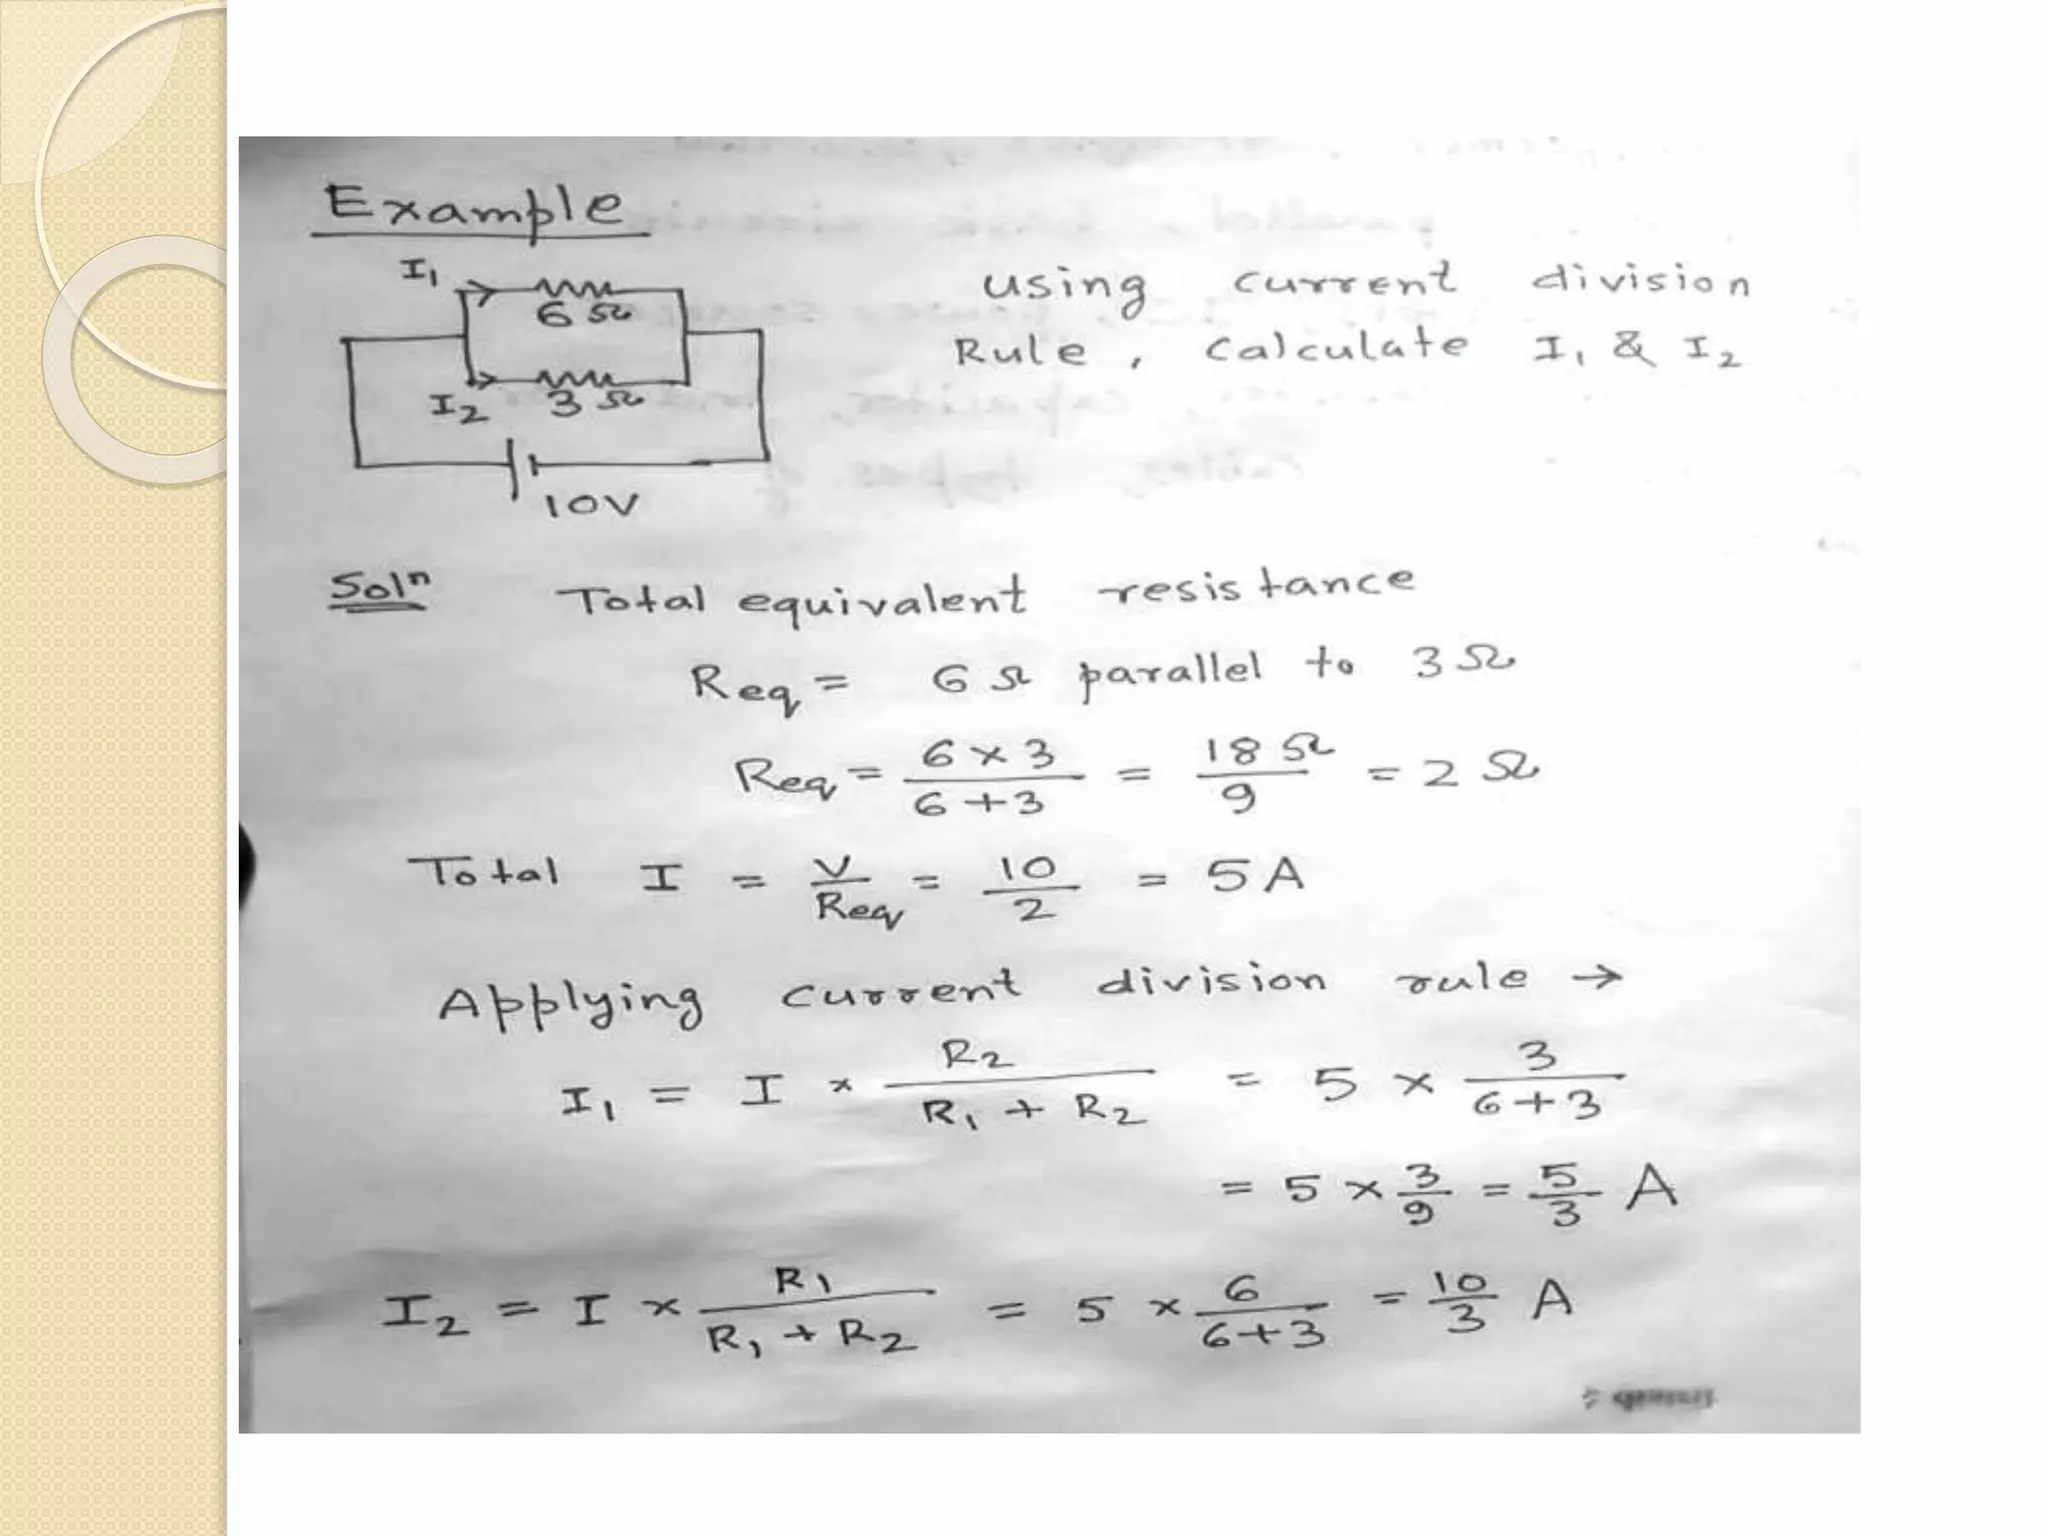 Example
I₁
6 Ω
I₂ 3 Ω
10V
using current division
Rule, Calculate I₁ & I₂
Solⁿ Total equivalent resistance
Req = 6 Ω parallel to 3 Ω
Req = 6 × 3 / 6 + 3 = 18 Ω / 9 = 2 Ω
Total I = V / Req = 10 / 2 = 5 A
Applying current division rule →
I₁ = I × R₂ / R₁ + R₂ = 5 × 3 / 6 + 3
= 5 × 3 / 9 = 5 / 3 A
I₂ = I × R₁ / R₁ + R₂ = 5 × 6 / 6 + 3 = 10 / 3 A